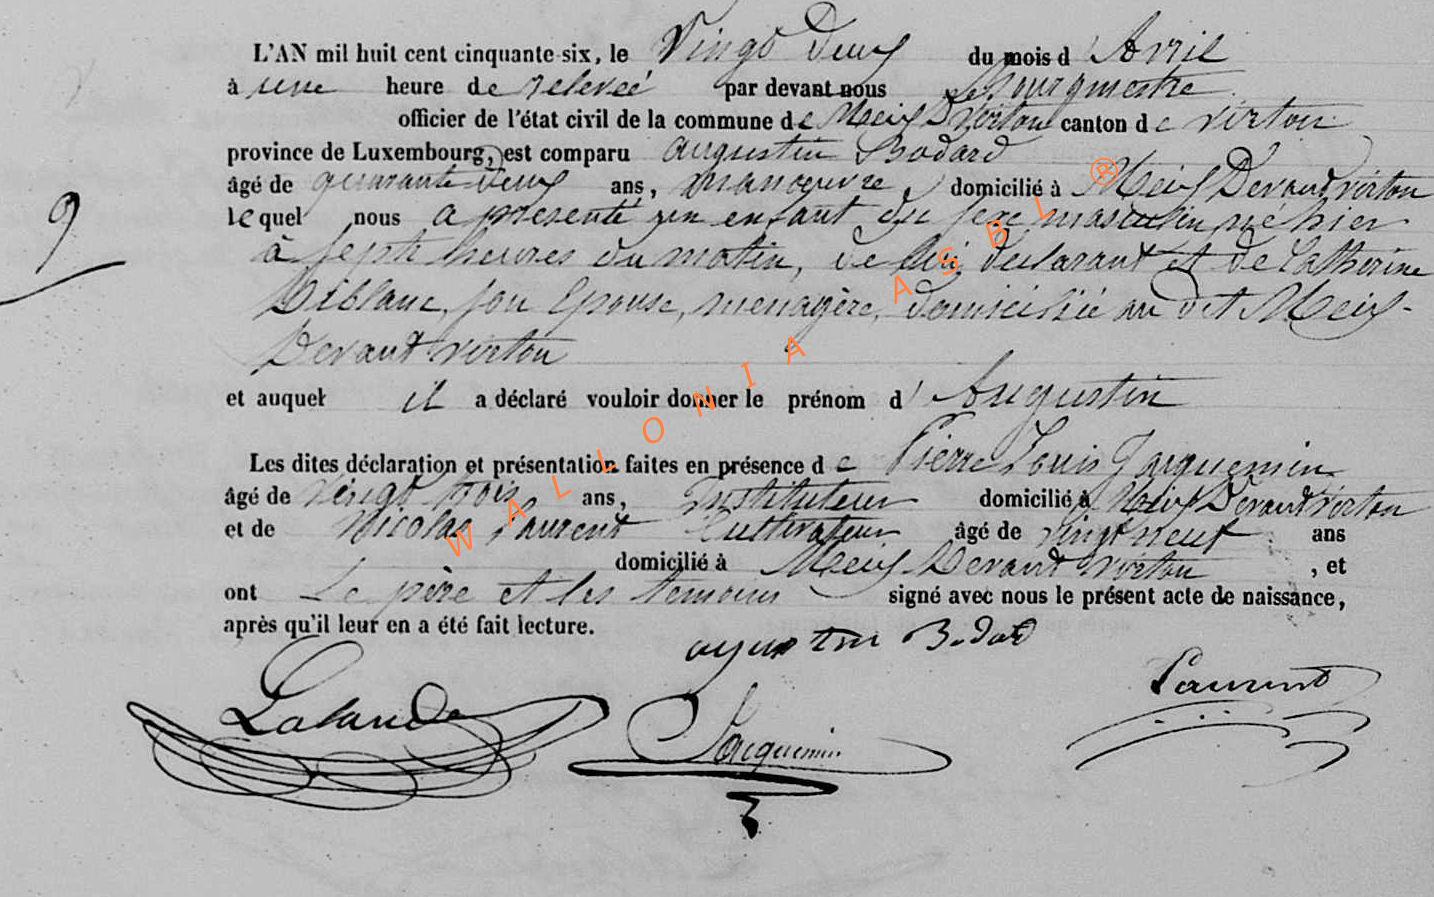 L'AN mil huit cent cinquante-six, le Vingt Deux du mois d'Avril
à une heure de relevée par devant nous Bourgmestre
officier de l'état civil de la commune de Meix Dt Virton canton de Virton
province de Luxembourg, est comparu Augustin Bodard
âgé de quarante deux ans, manoeuvre, domicilié à Meix Devant Virton
lequel nous a présenté un enfant du sexe masculin, né hier
à sept heures du matin, de lui déclarant et de Catherine
son Epouse, ménagère, domiciliée au dit Meix-
Devant Virton
et auquel il a déclaré vouloir donner le prénom d'Augustin
Les dites déclaration et présentation faites en présence de Pierre Louis Jacquemin
âgé de vingt trois ans, Instituteur domicilié à Meix Devant Virton
et de Nicolas Laurent Cultivateur âgé de vingt neuf ans
domicilié à Meix Devant Virton, et
ont Le père et les temoins signé avec nous le présent acte de naissance,
après qu'il leur en a été fait lecture.
Bodard
Laurent
Jacquemin
9
WALLONIA ASBL ®